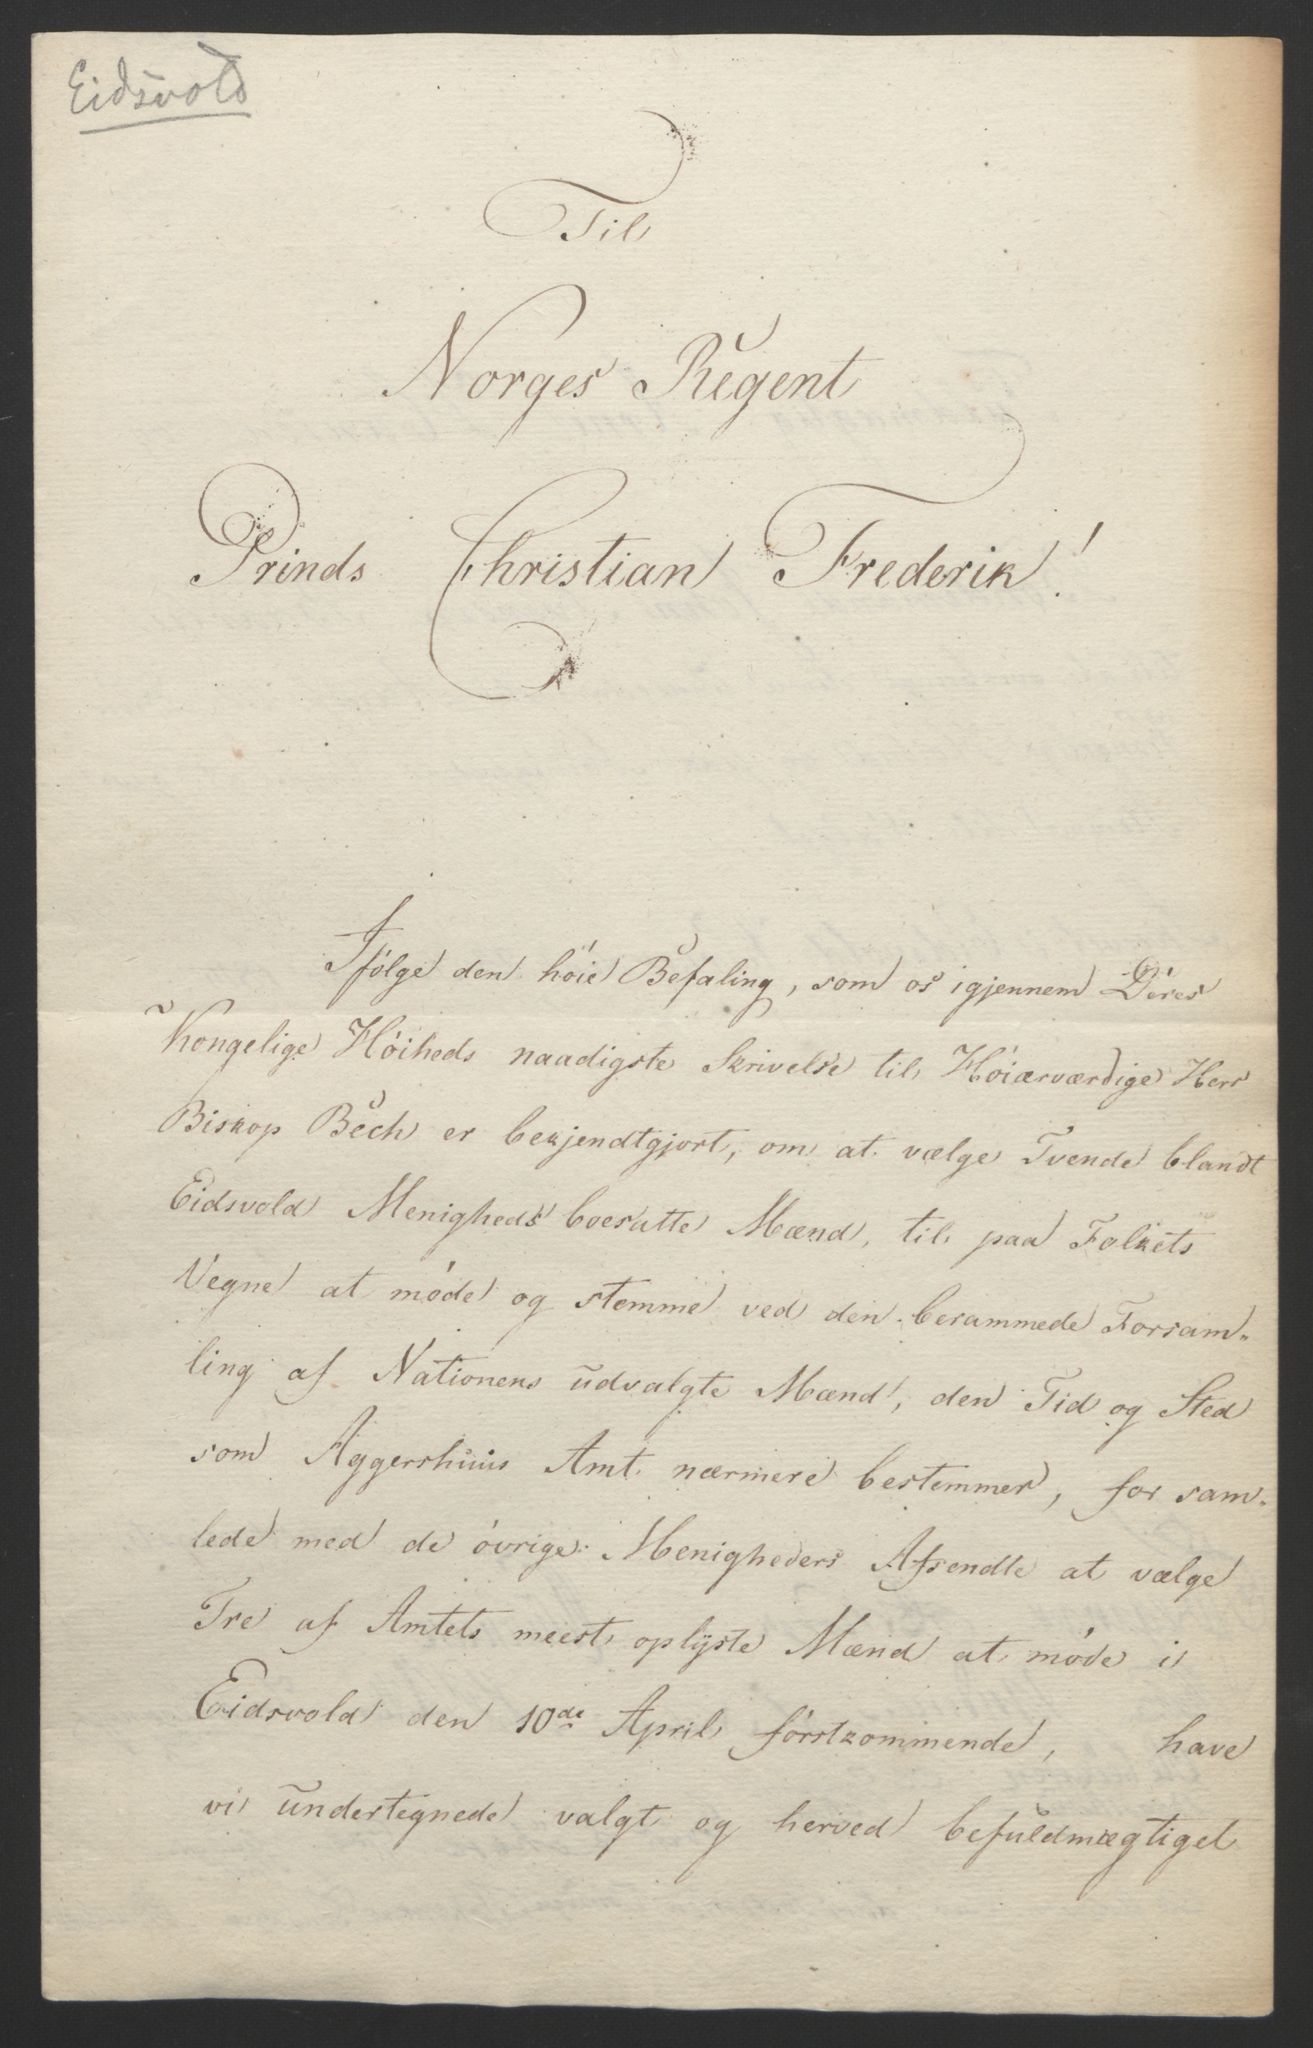 Eidsvold
Til
Norges Regent
Prinds Christian Frederik!
Ifölge den höie Befaling, som os igjennem Deres
Kongelige Höiheds naadigste Skrivelse til Höiærværdige Herr
Biskop Bech er bekjendtgjort, om at vælge Tvende blandt
Eidsvold Menigheds boesatte Mænd, til paa Folkets
Vegne at möde og stemme ved den berammede Forsam-
ling af Nationens udvalgte Mænd, den Tid og Sted
som Aggershuus Amt nærmere bestemmer, for sam-
lede med de övrige Menigheders Afsendte at vælge
Tre af Amtets meest oplyste Mænd at möde i
Eidsvold den 10de April förstkommende, have
vi undertegnede valgt og herved befuldmægtiget